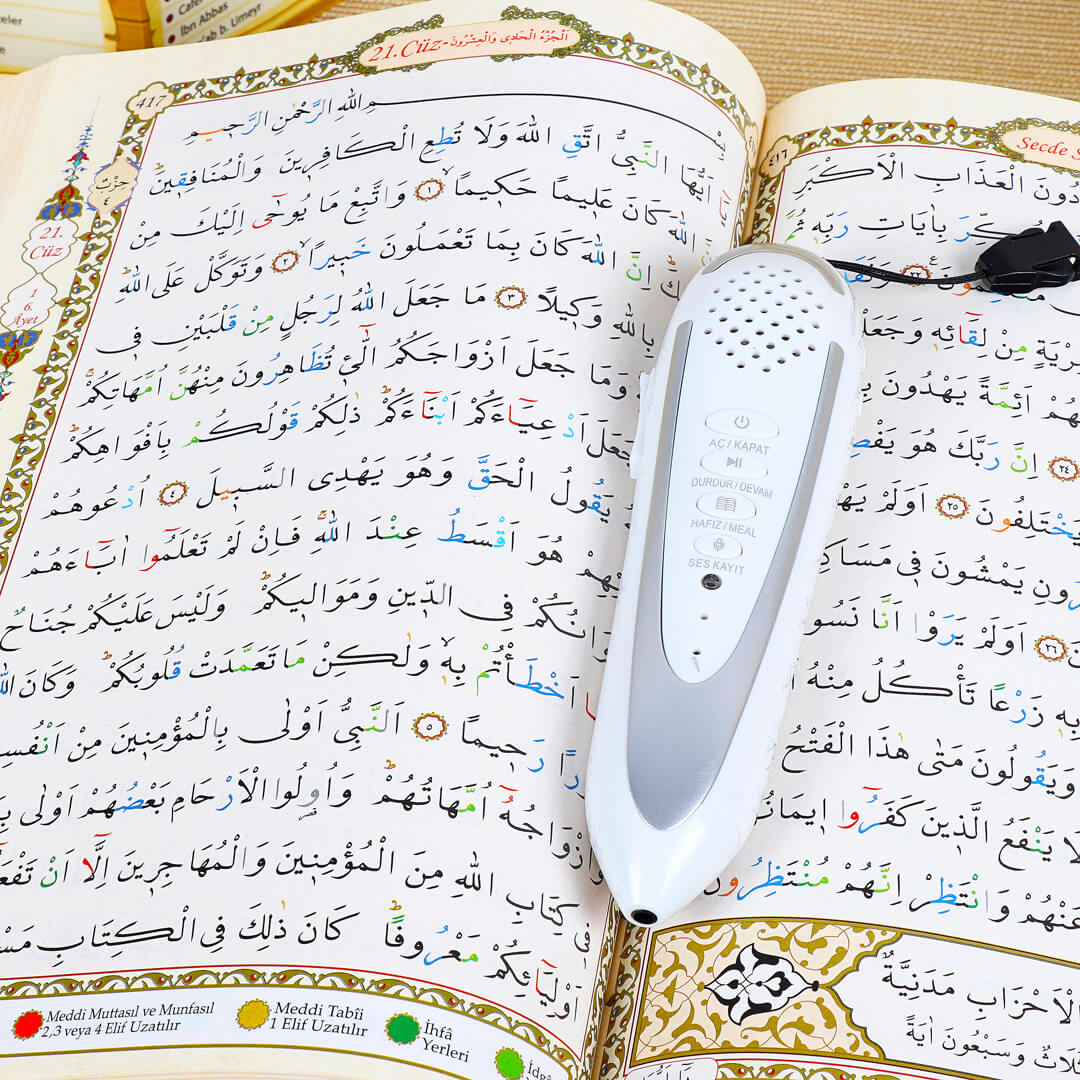 Cafer
İbn Abbas
b. Umeyr
21. Cüz - اَلْجُزْءُ الْحَادِى وَالْعِشْرُونَ
417
حِزْبٌ
٤
21.
Cüz
1
6.
Âyet
اللّٰهِ الرَّحْمٰنِ الرَّحٖيمِ
اَيُّهَا النَّبِىُّ اتَّقِ اللّٰهَ وَلَا تُطِعِ الْكَافِرٖينَ وَالْمُنَافِقٖينَ
اللّٰهَ كَانَ عَلٖيمًا حَكٖيمًا ۝١ وَاتَّبِعْ مَا يُوحٰٓى اِلَيْكَ مِنْ
اِنَّ اللّٰهَ كَانَ بِمَا تَعْمَلُونَ خَبٖيرًا ۝٢ وَتَوَكَّلْ عَلَى اللّٰهِ
بِاللّٰهِ وَكٖيلًا ۝٣ مَا جَعَلَ اللّٰهُ لِرَجُلٍ مِنْ قَلْبَيْنِ فٖى
وَمَا جَعَلَ اَزْوَاجَكُمُ الّٰٓئٖ تُظَاهِرُونَ مِنْهُنَّ اُمَّهَاتِكُمْ
جَعَلَ اَدْعِيَٓاءَكُمْ اَبْنَٓاءَكُمْ ذٰلِكُمْ قَوْلُكُمْ بِاَفْوَاهِكُمْ
يَقُولُ الْحَقَّ وَهُوَ يَهْدِى السَّبٖيلَ ۝٤ اُدْعُوهُمْ
هُوَ اَقْسَطُ عِنْدَ اللّٰهِ فَاِنْ لَمْ تَعْلَمُٓوا اٰبَٓاءَهُمْ
فِى الدّٖينِ وَمَوَالٖيكُمْ وَلَيْسَ عَلَيْكُمْ جُنَاحٌ
اَخْطَأْتُمْ بِهٖ وَلٰكِنْ مَا تَعَمَّدَتْ قُلُوبُكُمْ وَكَانَ
رَحٖيمًا ۝٥ اَلنَّبِىُّ اَوْلٰى بِالْمُؤْمِنٖينَ مِنْ
اُمَّهَاتُهُمْ وَاُولُوا الْاَرْحَامِ بَعْضُهُمْ اَوْلٰى
كِتَابِ اللّٰهِ مِنَ الْمُؤْمِنٖينَ وَالْمُهَاجِرٖينَ اِلَّٓا اَنْ
فٖى
اَوْلِيَٓائِكُمْ مَعْرُوفًا كَانَ ذٰلِكَ فِى الْكِتَابِ
Meddi Muttasıl ve Munfasıl
2,3 veya 4 Elif Uzatılır
Meddi Tabîi
1 Elif Uzatılır
İhfâ
Yerleri
AÇ / KAPAT
DURDUR / DEVAM
HAFIZ / MEAL
SES KAYIT
Secde
٤١٦
دُونَ الْعَذَابِ الْاَكْبَرِ
بِاٰيَاتِ رَبِّهٖ ثُمَّ
٢٢
مِنْ لِقَٓائِهٖ
اَئِمَّةً يَهْدُونَ
٢٤ اِنَّ رَبَّكَ هُوَ
يَخْتَلِفُونَ ٢٥ اَوَلَمْ
يَمْشُونَ فٖى
٢٦ اَوَلَمْ يَرَوْا اَنَّا
بِهٖ زَرْعًا تَأْكُلُ مِنْهُ
وَيَقُولُونَ مَتٰى هٰذَا الْفَتْحُ
يَنْفَعُ الَّذٖينَ كَفَرُٓوا
عَنْهُمْ وَانْتَظِرْ اِنَّهُمْ مُنْتَظِرُونَ
الْاَحْزَابِ مَدَنِيَّةٌ
وَسَبْعُونَ اٰيَةً